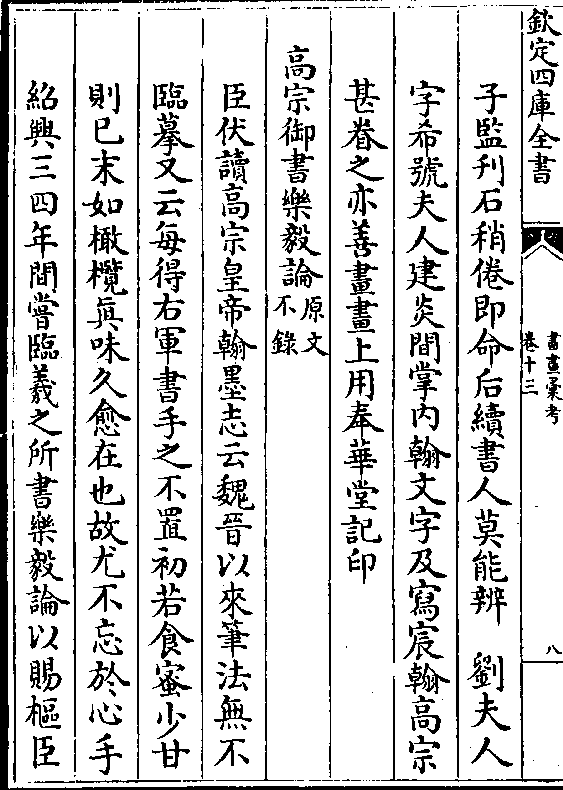 欽定四庫全書
書畫彙考
卷十三
八
子監刊石稍倦即命后續書人莫能辨　劉夫人
字希號夫人建炎間掌内翰文字及寫宸翰高宗
甚眷之亦善畫畫上用奉華堂記印
高宗御書樂毅論原文不錄
臣伏讀高宗皇帝翰墨志云魏晉以來筆法無不
臨摹又云每得右軍書手之不置初若食蜜少甘
則已末如橄欖真味久愈在也故尤不忘於心手
紹興三四年間嘗臨羲之所書樂毅論以賜樞臣